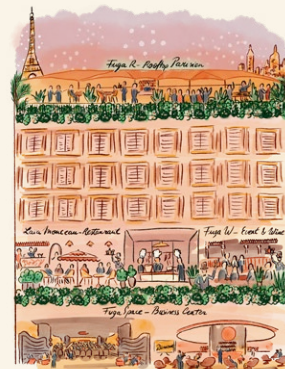 Fuga R - Rooftop Parisien
Restaurant
Fuga W - Event & Wine
Fuga Space - Business Center